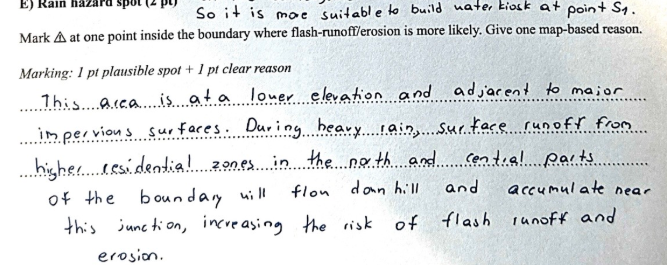 E) Rain hazard spot (2 pt)
So it is moe suitable to build water kiosk at point S1.
Mark ⚠ at one point inside the boundary where flash-runoff/erosion is more likely. Give one map-based reason.
Marking: 1 pt plausible spot + 1 pt clear reason
This area is at a lower elevation and adjacent to major
impervious surfaces. During heavy rain, surface runoff from
higher residential zones in the north and central parts
of the boundary will flow down hill and accumulate near
this junction, increasing the risk of flash runoff and
erosion.